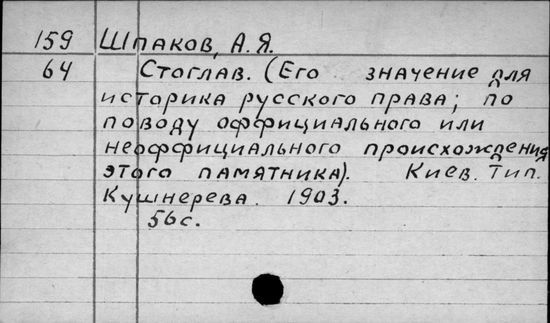 159 Шпаков, А.Я.
64 Стоглав. (Его значение для
историка русского права; по
поводу оффициального или
неоффициального происхождения
этого памятника). Киев. Тип.
Кушнерева. 1903.
56с.